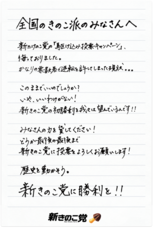 全国のきのこ派のみなさんへ
新きのこ党の「駆け込み投票キャンペーン」、
悔しておりました。
このままでいいのでしょうか！
いや、いい わけがない！
新きのこ党の初勝利を我々は望んでいるんです！！
みんなの力を貸してください！
どうか最後の最後まで
新きのこ党に投票をよろしくお願いします！
歴史を動かそう。
新きのこ党に勝利を！！
新きのこ党